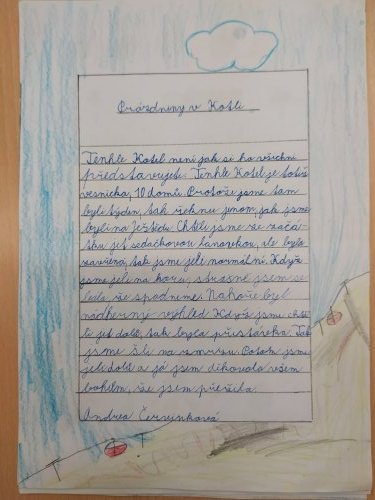 Prázdniny v Kotli
Tenhle Kotel není jak si ho všichni
představujete. Tenhle Kotel je totiž
vesnička, 10 domů. Protože jsme tam
byli týden, tak řeknu jenom, jak jsme
byli na Ještědu. Chtěli jsme ze začá-
tku jet sedačkovou lanovkou, ale byla
zavřená, tak jsme jeli normální. Když
jsme jeli na horu, strašně jsem se
bála, že spadneme. Nahoře byl
nádherný výhled. Když jsme chtě-
li jet dolů, tak byla přestávka. Tak
jsme šli na zmrzku. Potom jsme
jeli dolů a já jsem děkovala všem
bohům, že jsem přežila.
Andrea Červinková